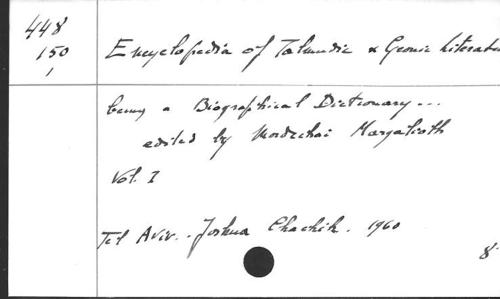 448
150
1
Encyclopedia of Talmudic & Geonic Literatu
being a Biographical Dictionary...
edited by Mordechai Margalioth
Vol. I
Tel Aviv.. Joshua Chachik. 1960
8°